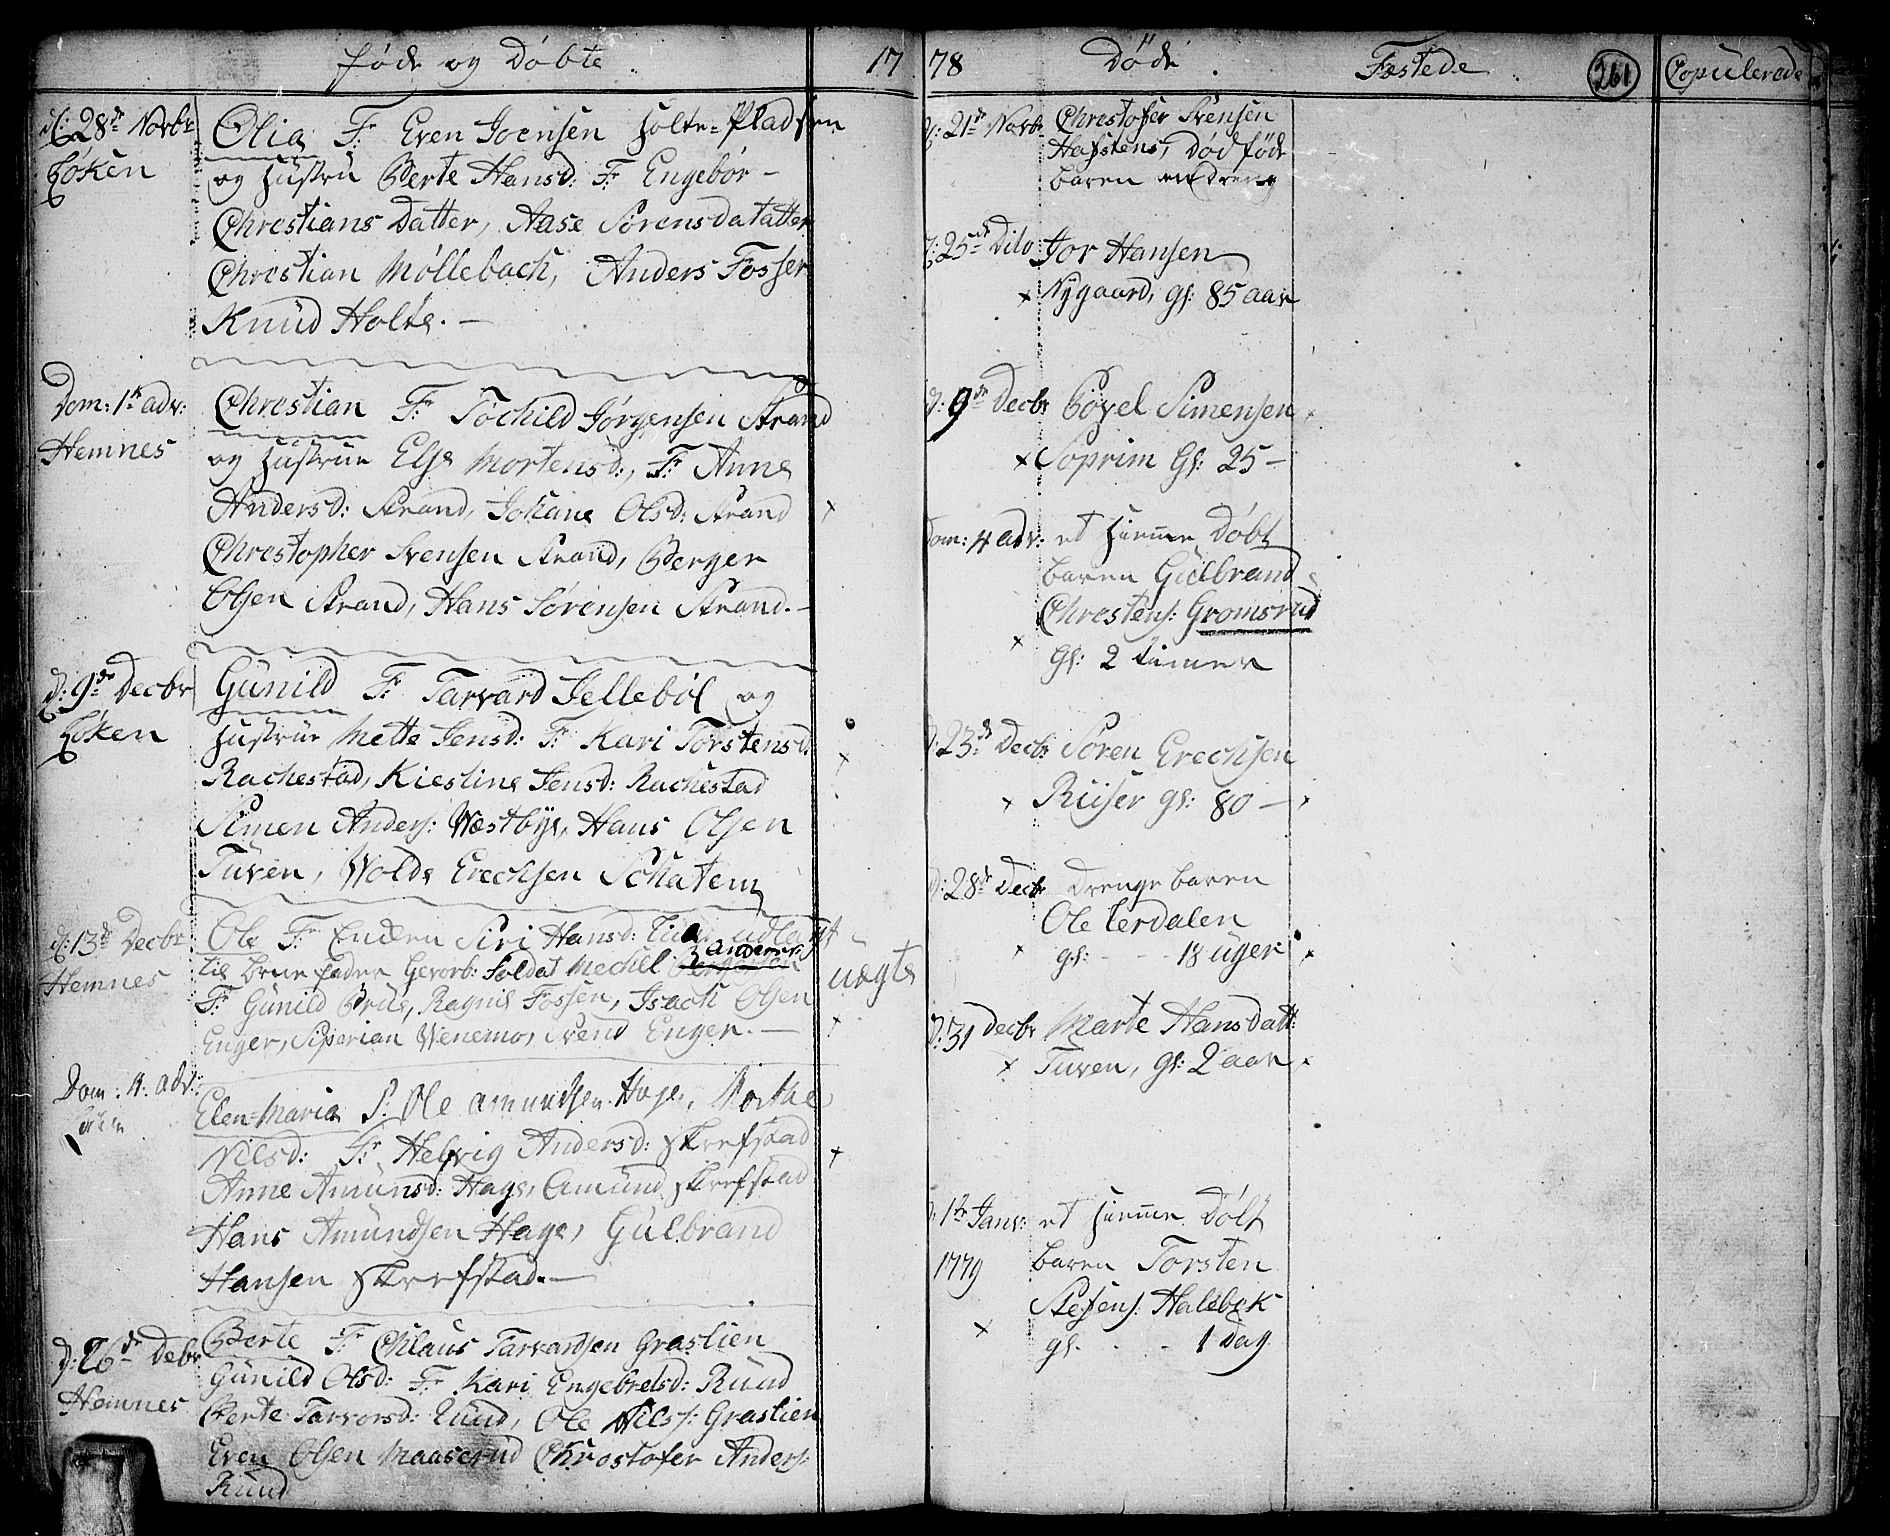 føde og Døbte
17
d: 28de Novbr
Høken
Olia F: Even Joensen Holte=Pladsen
og Hustru Berte Hansd: F: Engebør-
Chrestians Datter, Aase Sørensdatatter
Chrestian Møllebach, Anders Fosser
Knud Holte. —
Dom: 1te adv:
Hemnes
Chrestian F: Tochild Jørgensen Strand
og Hustrue Else Mortensd:, F: Anne
Andersd: Strand, Johane Olsd: Strand
Chrestopher Svensen Strand, Berger
Olsen Strand, Hans Sørensen Strand. —
d: 9de Decbr
Høken
Gunild F: Tarvard Jellebøl og
Hustrue Mette Jensd: F: Kari Torstensd:
Rachestad, Kiestine Jensd: Rachestad
Simen Anders: Westbye, Hans Olsen
Tuven, Wolde Erechsen Schatem
d: 13de Decbr
Hemnes
Ole F: Siri Hansd: udlagt
til barne fader Gevorb: Soldat Mechel Anders:
uægte
F: Gunild Brus, Ragnil Fossen, Isach Olsen
Enger, Siperian Wenemo, Svend Enger. —
Dom: 4. adv:
Elen=Maria F: Ole Amundsen Hage, Marthe
Nilsd: F: Helvig Andersd: Skrefstad
Anne Amunsd: Hage, Amund Skrefstad
Hans Amundsen Hage, Gulbrand
Hansen Skrefstad. —
d: 26de Debr
Hemnes
Berte F: Chlaus Tarvardsen Grastien
Gunild Olsd: F: Kari Engebretsd: Ruud
Berte Tarvorsd: Ruud, Ole Nils: Grastien
Even Olsen Maaserud Chrostofer Anders:
Ruud
78
Døde
Festede
261
Copulerede
d: 21de Novbr
Chrestofer Svensen
Hafstens, Død føde
baren en Dreng
d: 25de Dito
Jor Hansen
Nygaard, gl: 85 aar
d: 9de Decbr
Povel Simensen
Soprim Gl: 25 —
Dom: 4 adv:
et Hiemme Døbt
baren Gulbrand
Chrestens: Gromsrud
Gl: 2 timer
d: 23de Decbr
Søren Erechsen
Riiser gl: 80 —
d: 28de Decbr
Drenge baren
Ole Lerdalen
gl: - - - 18 uger
d: 31 Decbr
Marte Hansdatt:
Tuven, gl: 2 aar
d: 1te Janv:
1779
et Hiemme Døbt
baren Torsten
Stefens: Halsbek
gl. . . - 1 Dag